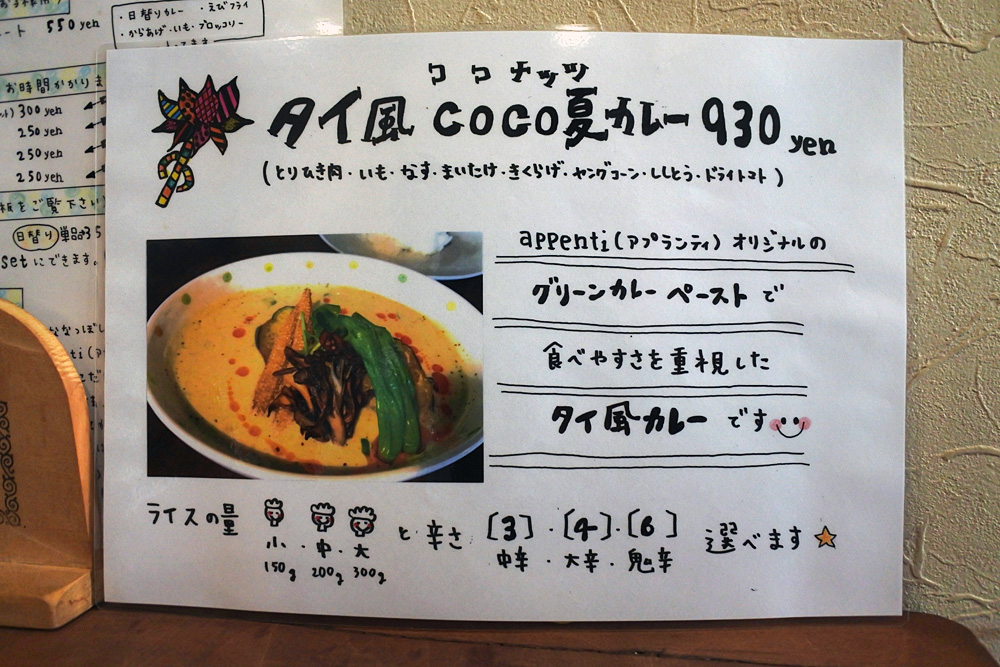 ・日替りカレー ・えびフライ
・からあげ・いも・ブロッコリー
550 yen
お時間かかりま
300 yen
250 yen
250 yen
250 yen
板をご覧下さい
日替り 単品
setにできます。
ココナッツ
タイ風 COCO夏カレー 930 yen
(とりひき肉・いも・なす・まいたけ・きくらげ・ヤングコーン・ししとう・ドライトマト)
appenti(アプランティ)オリジナルの
グリーンカレーペーストで
食べやすさを重視した
タイ風カレーです
ライスの量 小・中・大 と辛さ [3]・[4]・[6] 選べます
150g 200g 300g 中辛・大辛・鬼辛